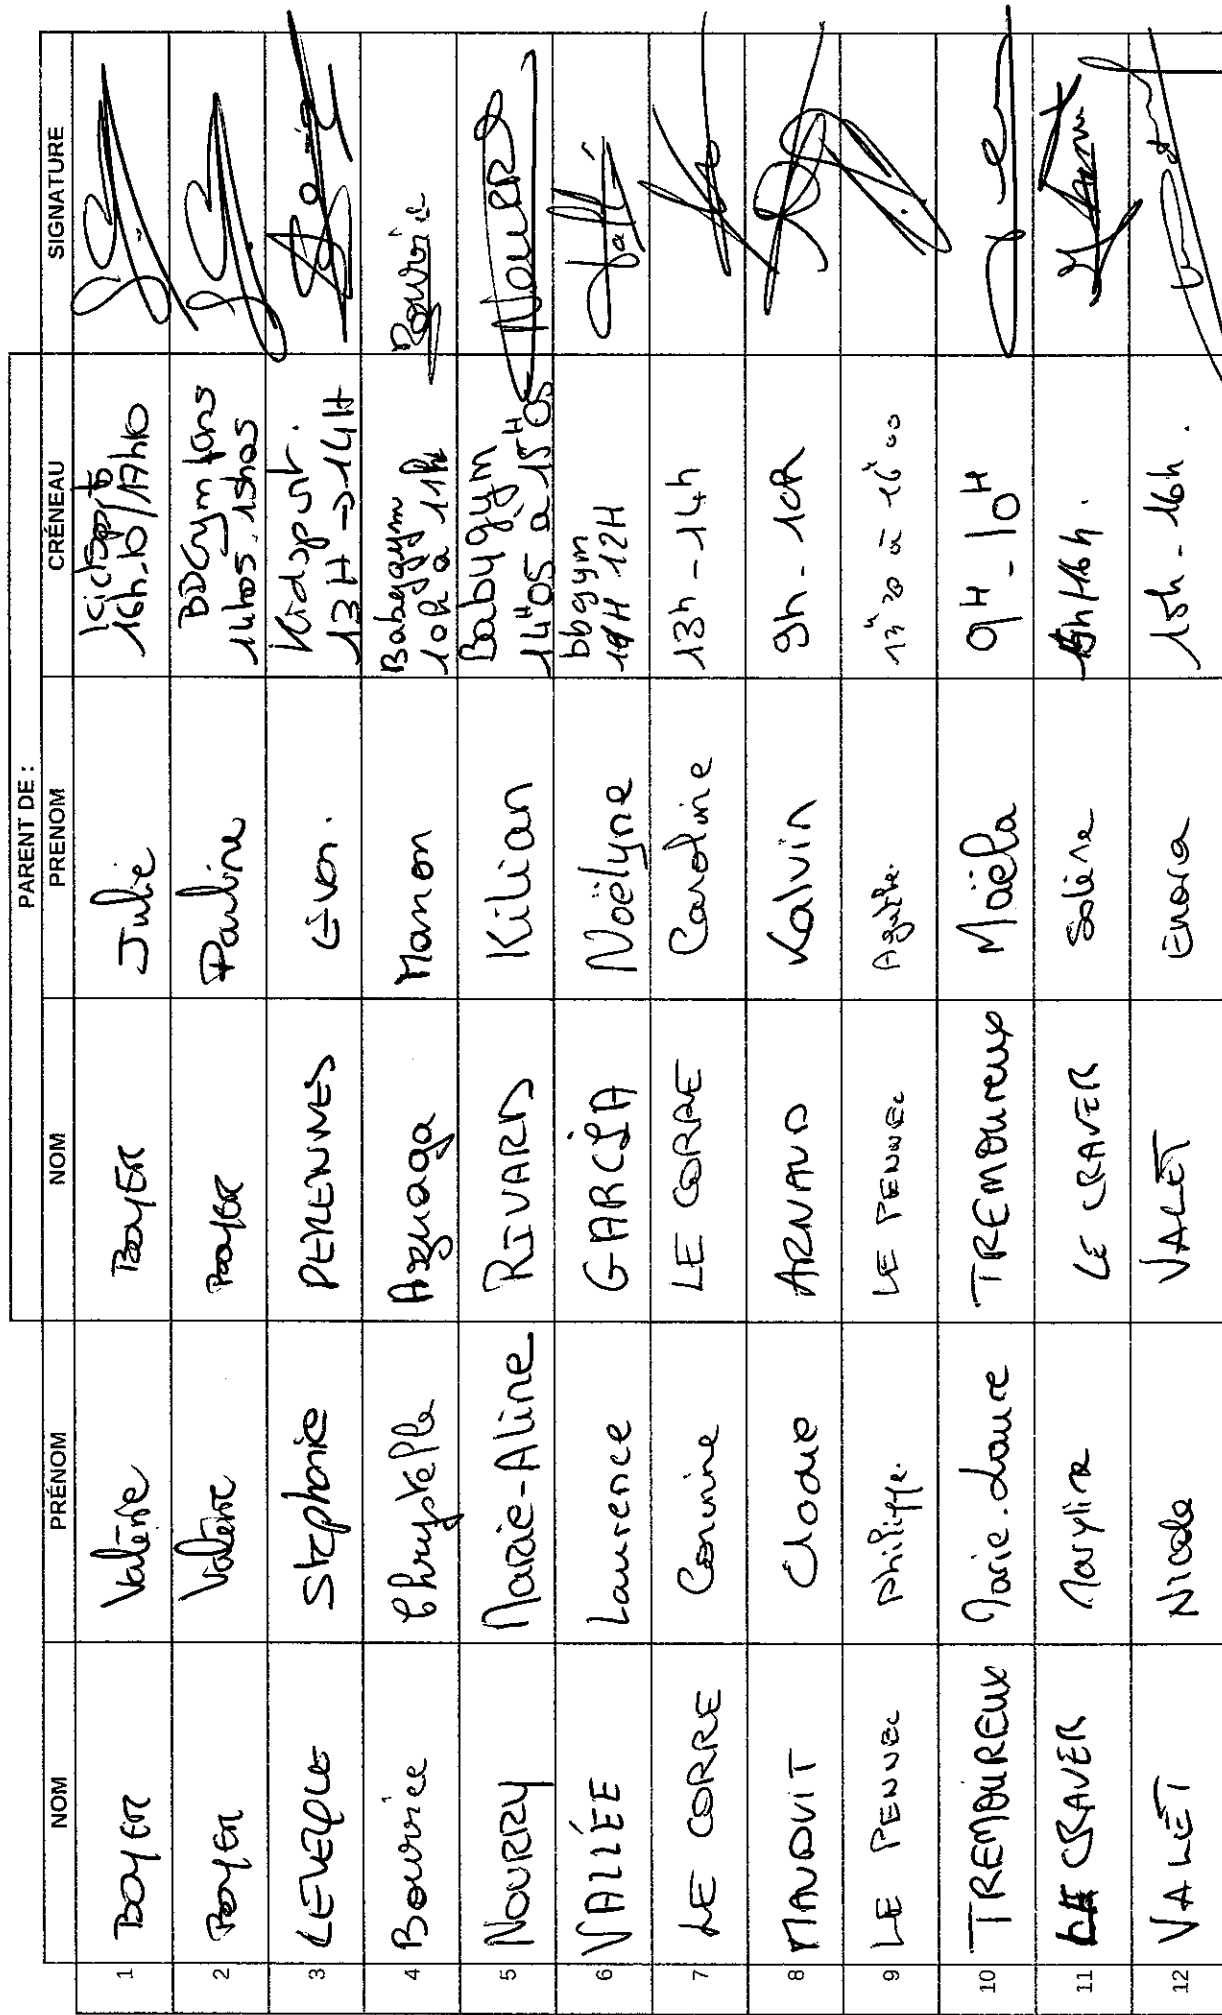 PARENT DE :
NOM PRÉNOM NOM PRENOM CRÉNEAU SIGNATURE
1 BOYER Valérie BOYER Julie 16h10/17h10
2 BOYER Valérie BOYER Pauline 14h05.15h05
3 LEVEQUE Stéphanie PERENNES Evan. Kidsport.
13H→14H
4 Bouvice Chrystelle Azuaga Manon Babygym
10h à 11h
5 NOURRY Marie-Aline RIVARD Kilian Babygym
14H05 à 15H05 NOURRY
6 VALLÉE Laurence GARCIA Noëlyne bbgym
11H 12H
7 LE CORRE Corinne LE CORRE Caroline 13h-14h
8 MAUDUIT Elodie ARNAUD Kalvin 9h-10h
9 LE PENNEC Philippe. LE PENNEC Agathe.
10 TREMOUREUX Marie.Laure TREMOUREUX Maëla 9H-10H
11 LE CRAVER Maryline LE CRAVER Solène 15h/16h.
12 VALET Nicole VALET Enora 15h-16h.